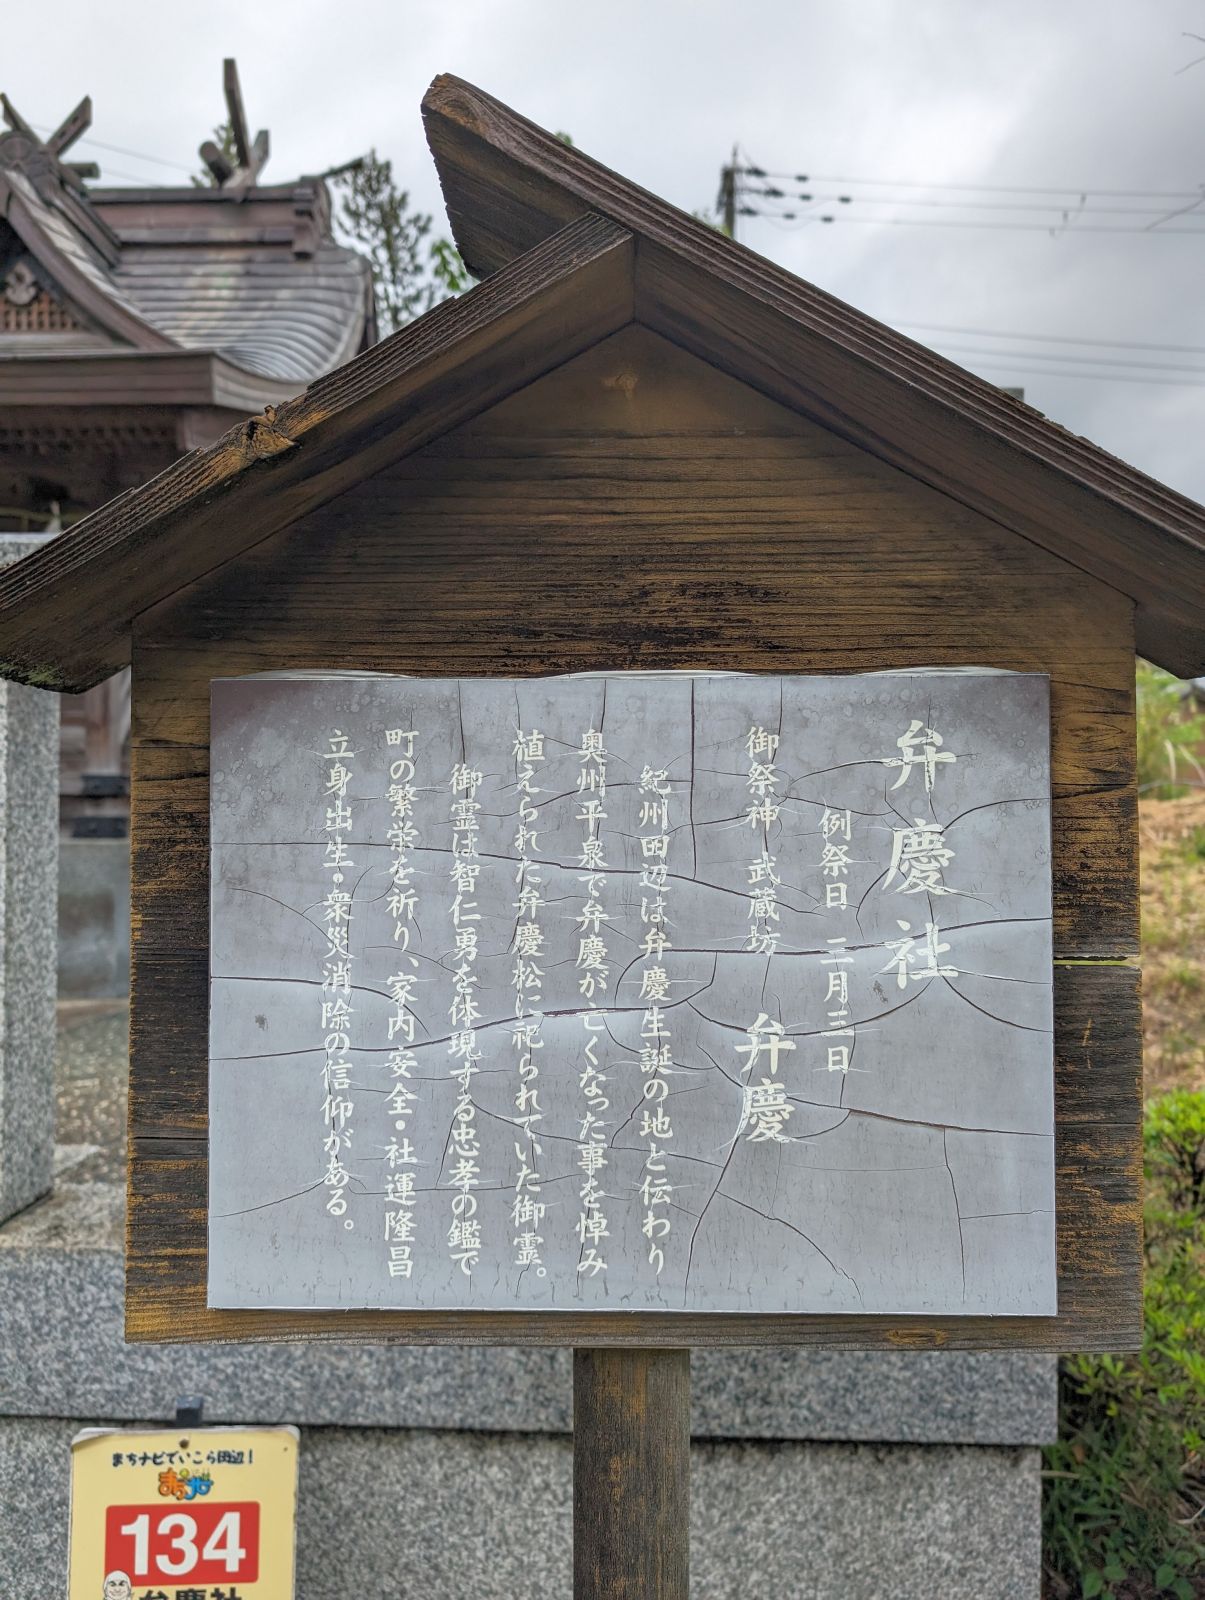 弁慶社
例祭日 二月三日
御祭神 武蔵坊 弁慶
紀州田辺は弁慶生誕の地と伝わり
奥州平泉で弁慶が亡くなった事を悼み
植えられた弁慶松に祀られていた御霊。
御霊は智仁勇を体現する忠孝の鑑で
町の繁栄を祈り、家内安全・社運隆昌
立身出生・衆災消除の信仰がある。
まちナビでいこら田辺！
まちナビ
134
弁慶社